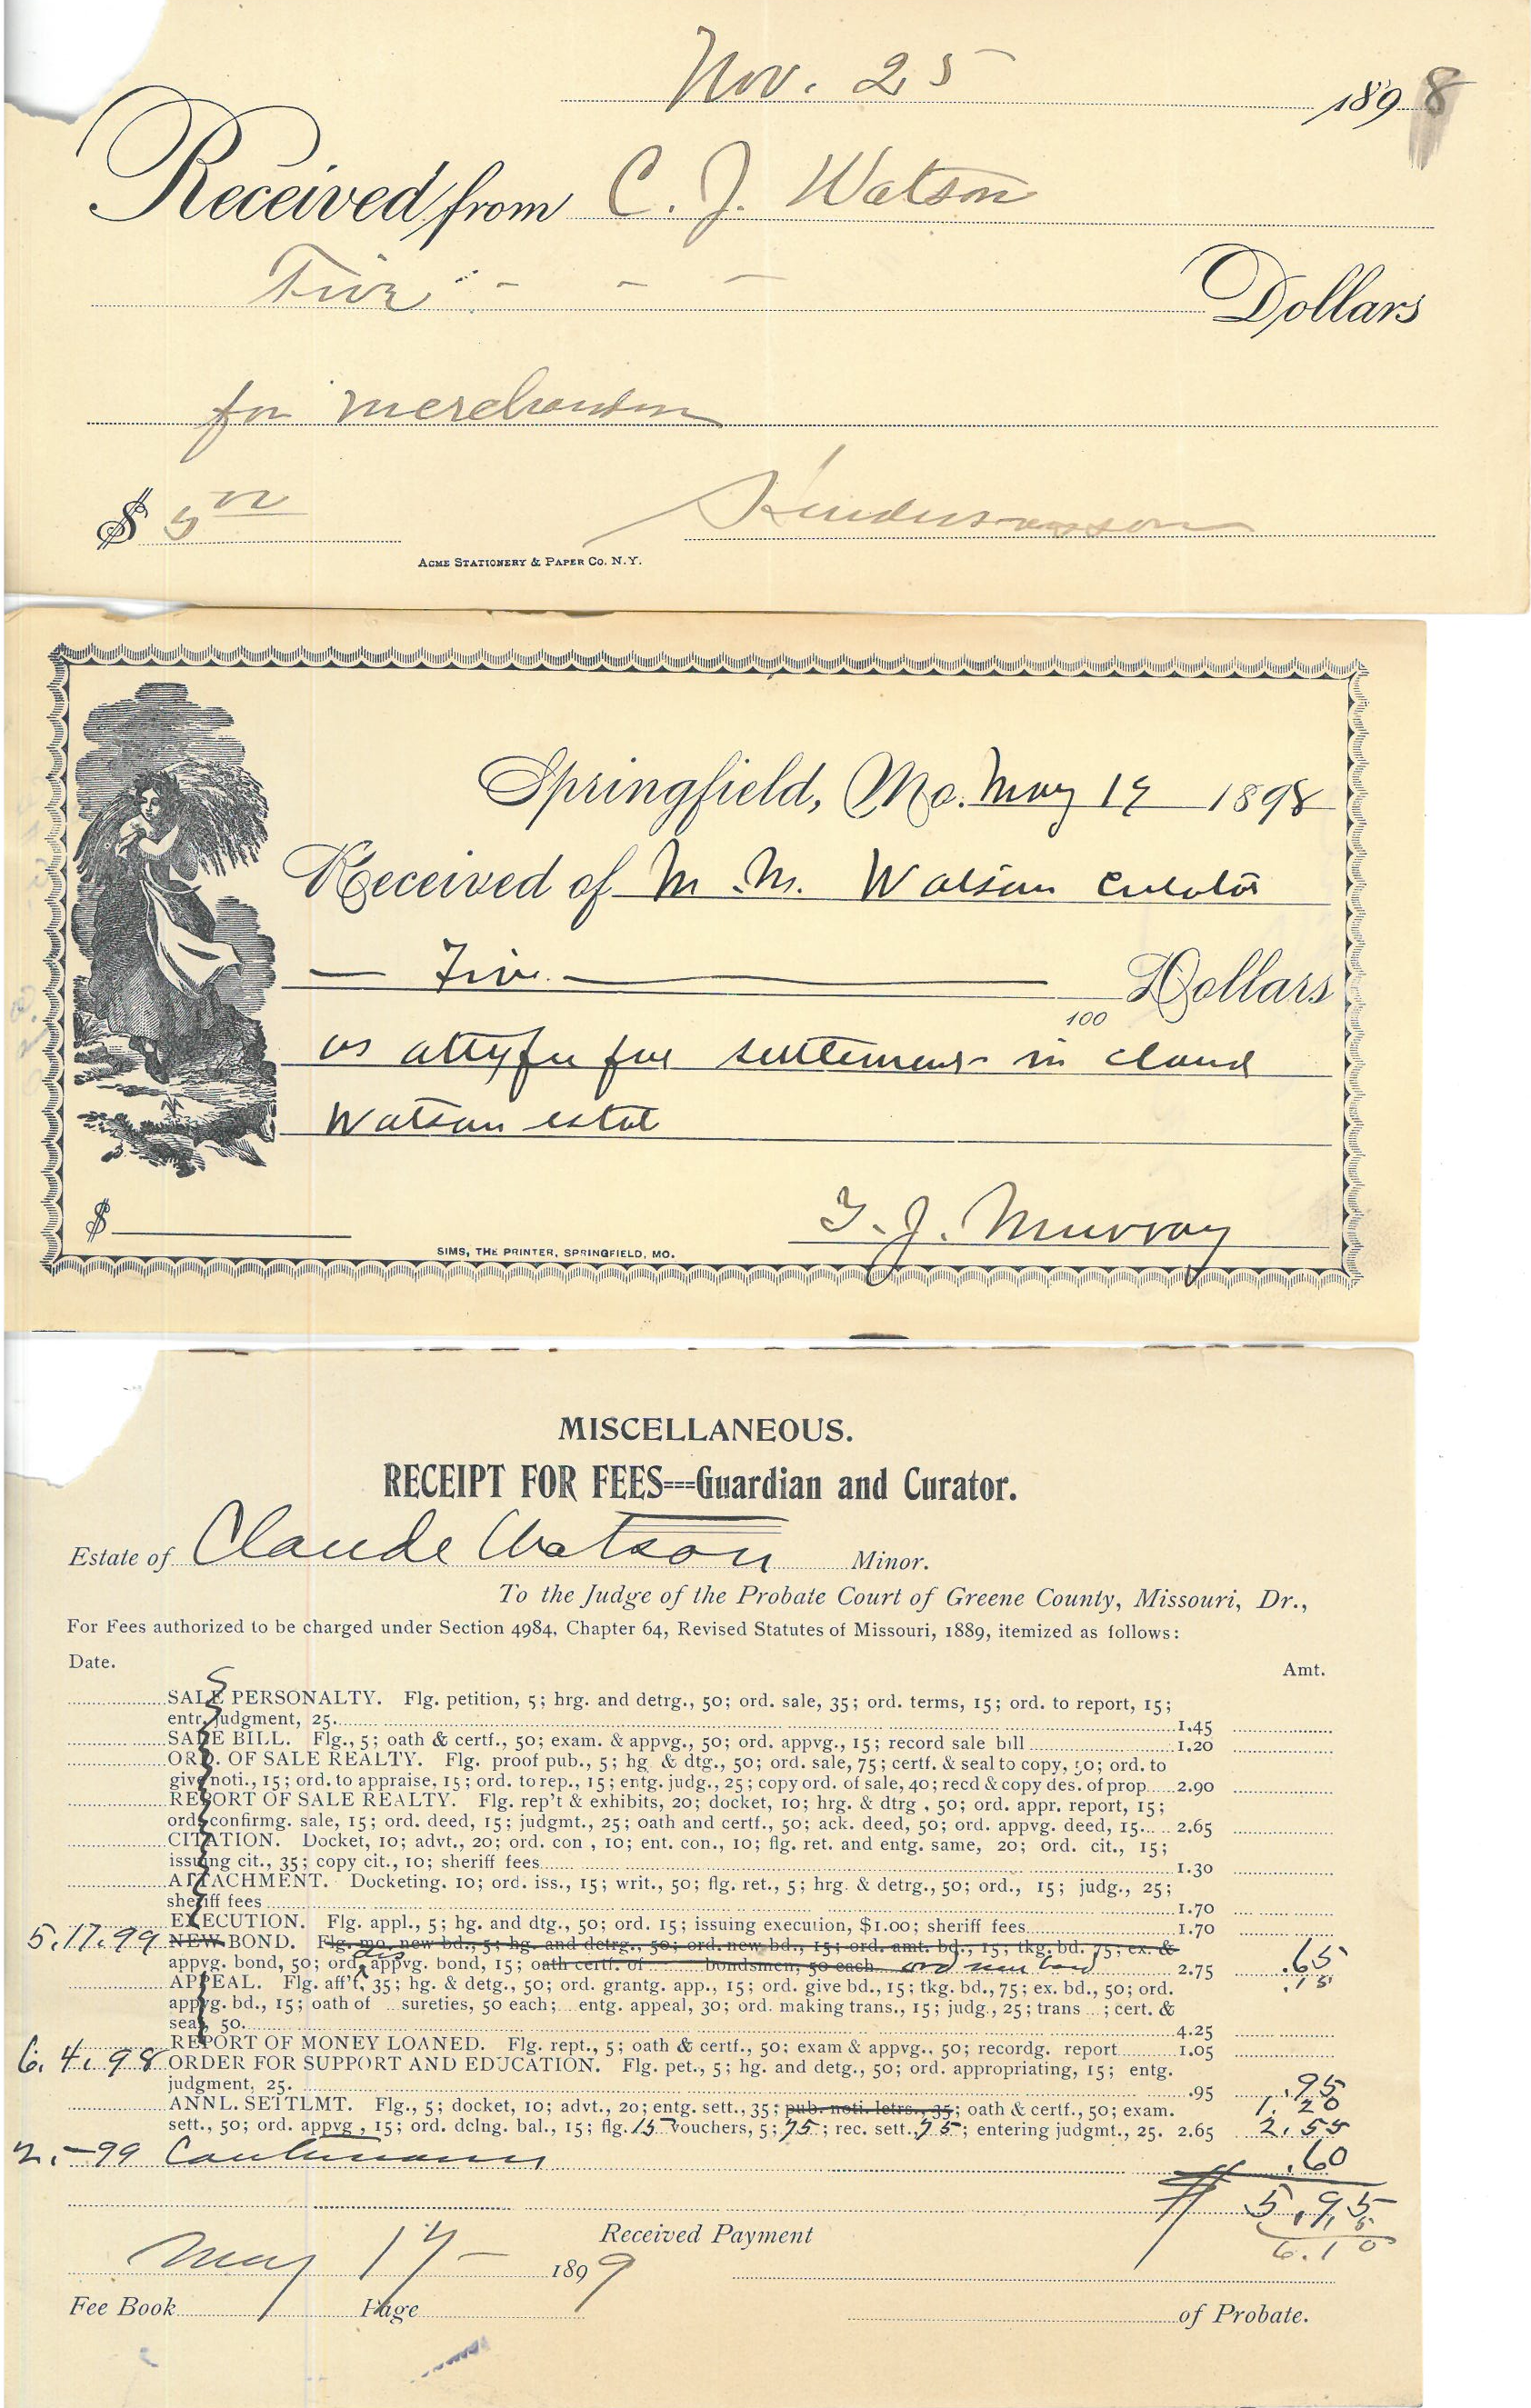 Nov. 25 1898
Received from C. J. Watson
Five - - - Dollars
for merchandise
$ 5 00
ACME STATIONERY & PAPER CO. N.Y.
Springfield, Mo. May 17 1898
Received of M. M. Watson Curator
— Five — Dollars
100
as atty fee for settlement in Claud
Watson estate
$
T. J. Murray
SIMS, THE PRINTER, SPRINGFIELD, MO.
MISCELLANEOUS.
RECEIPT FOR FEES---Guardian and Curator.
Estate of Claude Watson Minor.
To the Judge of the Probate Court of Greene County, Missouri, Dr.,
For Fees authorized to be charged under Section 4984, Chapter 64, Revised Statutes of Missouri, 1889, itemized as follows:
Date. Amt.
SALE PERSONALTY. Flg. petition, 5; hrg. and detrg., 50; ord. sale, 35; ord. terms, 15; ord. to report, 15;
entr. judgment, 25. 1.45
SALE BILL. Flg., 5; oath & certf., 50; exam. & appvg., 50; ord. appvg., 15; record sale bill 1.20
ORD. OF SALE REALTY. Flg. proof pub., 5; hg & dtg., 50; ord. sale, 75; certf. & seal to copy, 50; ord. to
give noti., 15; ord. to appraise, 15; ord. to rep., 15; entg. judg., 25; copy ord. of sale, 40; recd & copy des. of prop. 2.90
REPORT OF SALE REALTY. Flg. rep't & exhibits, 20; docket, 10; hrg. & dtrg , 50; ord. appr. report, 15;
ord. confirmg. sale, 15; ord. deed, 15; judgmt., 25; oath and certf., 50; ack. deed, 50; ord. appvg. deed, 15. 2.65
CITATION. Docket, 10; advt., 20; ord. con , 10; ent. con., 10; flg. ret. and entg. same, 20; ord. cit., 15;
issuing cit., 35; copy cit., 10; sheriff fees 1.30
ATTACHMENT. Docketing. 10; ord. iss., 15; writ., 50; flg. ret., 5; hrg. & detrg., 50; ord., 15; judg., 25;
sheriff fees 1.70
EXECUTION. Flg. appl., 5; hg. and dtg., 50; ord. 15; issuing execution, $1.00; sheriff fees 1.70
5.17.99 NEW BOND. Flg. mo. new bd., 5; hg. and detrg., 50; ord. new bd., 15; ord. amt. bd., 15; tkg. bd. 75; ex. &
appvg. bond, 50; ord. dis appvg. bond, 15; oath certf. of bondsmen, 50 each ord new bond 2.75 .65
.15
APPEAL. Flg. aff't, 35; hg. & detg., 50; ord. grantg. app., 15; ord. give bd., 15; tkg. bd., 75; ex. bd., 50; ord.
appvg. bd., 15; oath of sureties, 50 each; entg. appeal, 30; ord. making trans., 15; judg., 25; trans ; cert. &
seal, 50. 4.25
REPORT OF MONEY LOANED. Flg. rept., 5; oath & certf., 50; exam & appvg., 50; recordg. report 1.05
6.4.98 ORDER FOR SUPPORT AND EDUCATION. Flg. pet., 5; hg. and detg., 50; ord. appropriating, 15; entg.
judgment, 25. .95 .95
ANNL. SETTLMT. Flg., 5; docket, 10; advt., 20; entg. sett., 35; pub. noti. letrs., 35; oath & certf., 50; exam. 1.20
sett., 50; ord. appvg , 15; ord. dclng. bal., 15; flg. 15 vouchers, 5; 75; rec. sett. 75; entering judgmt., 25. 2.65 2.55
2.-99 .60
$ 5.95
.15
6.10
Received Payment
May 17 - 1899
Fee Book Page of Probate.